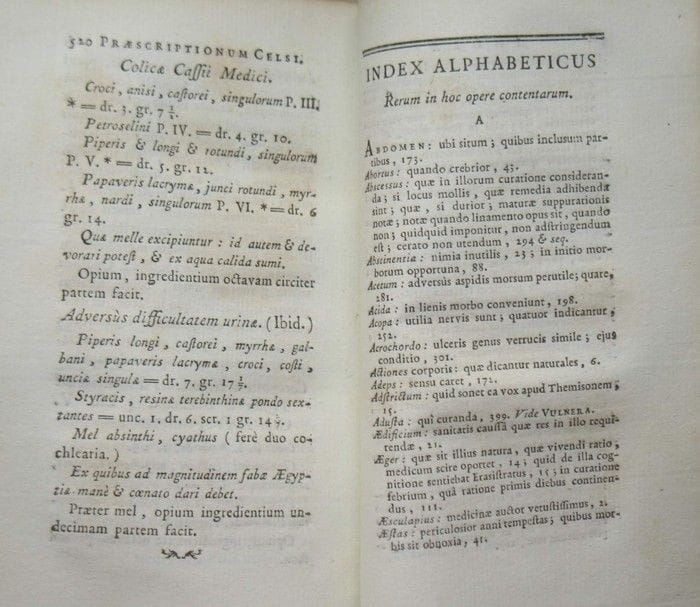 520 PRÆSCRIPTIONUM CELSI.
Colicæ Cassii Medici.
Croci, anisi, castorei, singulorum P. III.
* = dr. 3. gr. 7 1/2.
Petroselini P. IV. = dr. 4. gr. 10.
Piperis & longi & rotundi, singulorum
P. V. * = dr. 5. gr. 12.
Papaveris lacrymæ, junci rotundi, myr-
rhæ, nardi, singulorum P. VI. * = dr. 6
gr. 14.
Quæ melle excipiuntur : id autem & de-
vorari potest, & ex aqua calida sumi.
Opium, ingredientium octavam circiter
partem facit.
Adversùs difficultatem urinæ. (Ibid.)
Piperis longi, castorei, myrrhæ, gal-
bani, papaveris lacrymæ, croci, costi,
unciæ singulæ = dr. 7. gr. 17 1/2.
Styracis, resinæ terebinthinæ pondo sex-
tantes = unc. 1. dr. 6. scr. 1 gr. 14
Mel absinthi, cyathus ( ferè duo co-
chlearia. )
Ex quibus ad magnitudinem fabæ Ægyp-
tiæ manè & cœnato dari debet.
Præter mel, opium ingredientium un-
decimam partem facit.
INDEX ALPHABETICUS
Rerum in hoc opere contentarum.
A
ABDOMEN : ubi situm ; quibus inclusum par-
tibus, 173.
Abortus : quando crebrior, 43.
Abscessus : quæ in illorum curatione consideran-
da ; si locus mollis, quæ remedia adhibenda
sint ; quæ, si durior ; maturæ suppurationis
notæ ; notæ quando linamento opus sit, quando
non ; quidquid imponitur, non adstringendum
est ; cerato non utendum, 294 & seq.
Abstinentia : nimia inutilis, 23 ; in initio mor-
borum opportuna, 88.
Acetum : adversùs aspidis morsum perutile ; quare,
281.
Acida : in lienis morbo conveniunt, 198.
Acopa : utilia nervis sunt ; quatuor indicantur,
252.
Acrochordo : ulceris genus verrucis simile ; ejus
conditio, 301.
Actiones corporis : quæ dicantur naturales, 6.
Adeps : sensu caret, 172.
Adstrictum : quid sonet ea vox apud Themisonem,
15.
Adusta : quî curanda, 399. Vide VULNERA.
Ædificium : sanitatis caussâ quæ res in illo requi-
rendæ, 21.
Æger : quæ sit illius natura, quæ vivendi ratio,
medicum scire oportet, 14 ; quid de illa cog-
nitione sentiebat Erasistratus, 15 ; in curatione
febrium, quâ ratione primis diebus continen-
dus, 111.
Æsculapius : medicinæ auctor vetustissimus, 2.
Æstas : periculosior anni tempestas ; quibus mor-
bis sit obnoxia, 41.